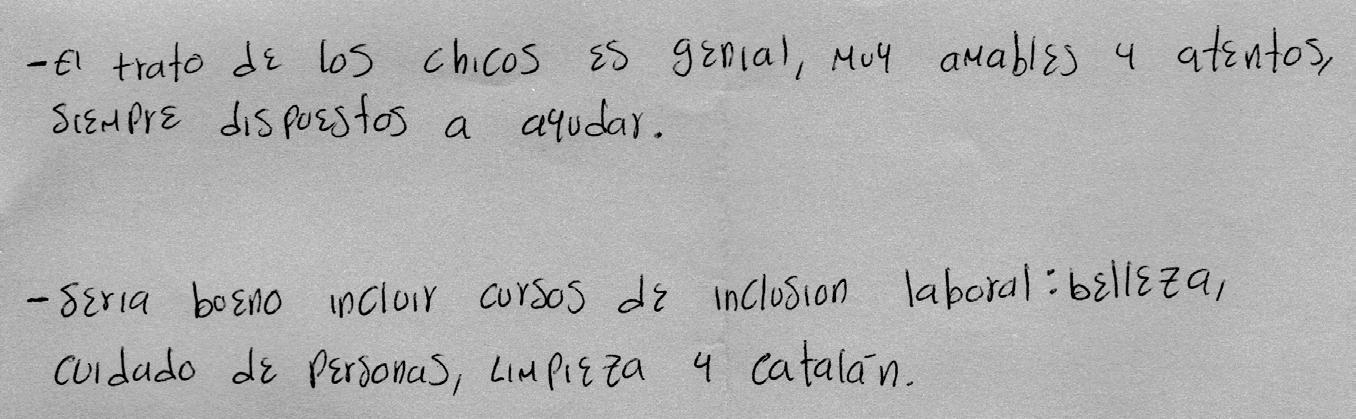 -El trato de los chicos es genial, muy amables y atentos,
siempre dispuestos a ayudar.
-Seria bueno incluir cursos de inclusion laboral: belleza,
cuidado de personas, limpieza y catalán.